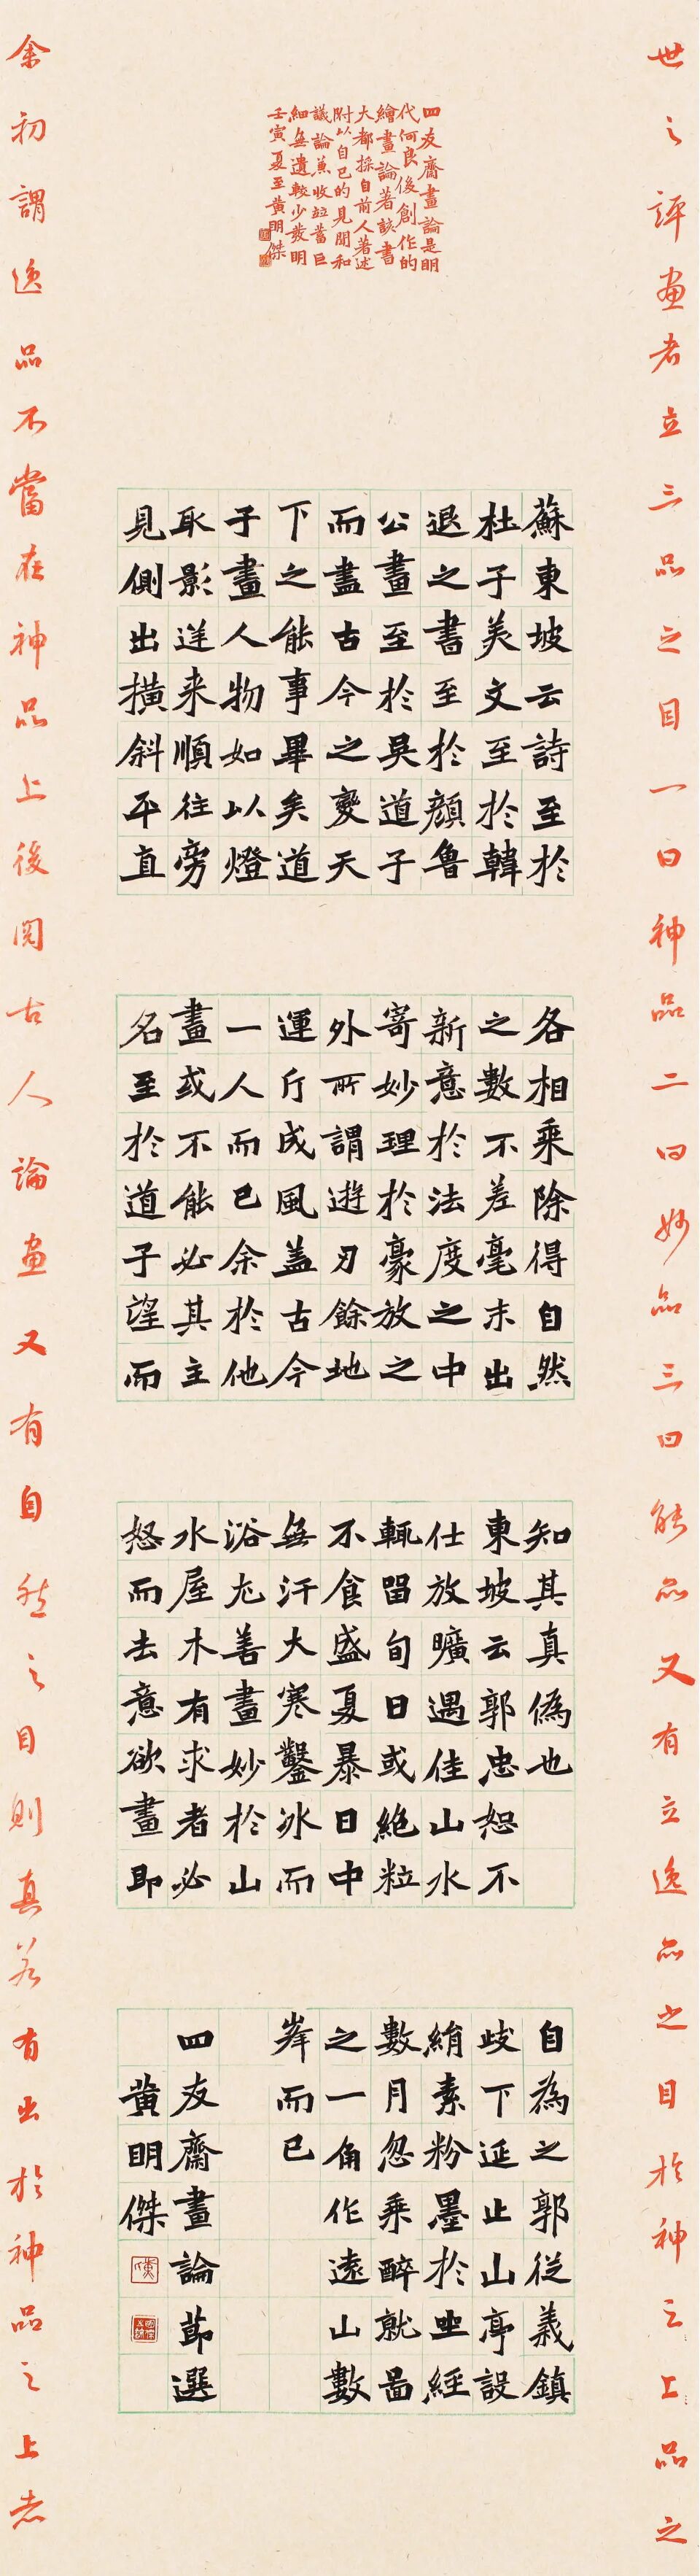 四友齋畫論是明
代何良俊創作的
繪畫論著該書
大都採自前人著述
附以自己的見聞和
議論兼收並蓄巨
細無遺較少發明
壬寅夏至黃明傑
世之評畫者立三品之目一曰神品二曰妙品三曰能品又有立逸品之目於神之上品之
蘇東坡云詩至於
杜子美文至於韓
退之書至於顏魯
公畫至於吳道子
而盡古今之變天
下之能事畢矣道
子畫人物如以燈
取影逆来順往旁
見側出橫斜平直
各相乘除得自然
之數不差毫末出
新意於法度之中
寄妙理於豪放之
外所謂遊刃餘地
運斤成風蓋古今
一人而已余於他
畫或不能必其主
名至於道子望而
知其真偽也
東坡云郭忠恕不
仕放曠遇佳山水
輒留旬日或絕粒
不食盛夏暴日中
無汗大寒鑿冰而
浴尤善畫妙於山
水屋木有求者必
怒而去意欲畫即
自為之郭從義鎮
岐下延止山亭設
絹素粉墨於坐經
數月忽乘醉就圖
之一角作遠山數
峯而已
四友齋畫論節選
黃明傑
余初謂逸品不當在神品上後閱古人論畫又有自然之目則真若有出於神品之上者